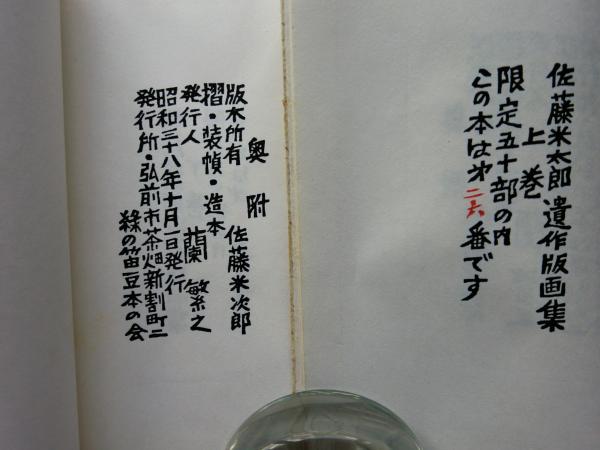 佐藤米太郎遺作版画集
上巻
限定五十部の内
この本は才二六番です
奥附
版木所有 佐藤米次郎
摺・装幀・造本
発行人 蘭繁之
昭和三十八年十月一日発行
発行所・弘前市茶畑新割町二
緑の笛豆本の会